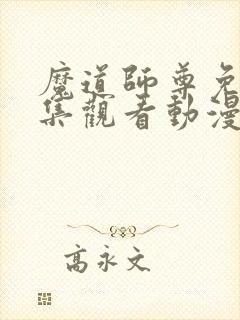 魔道師尊免
集觀看動漫
高永文